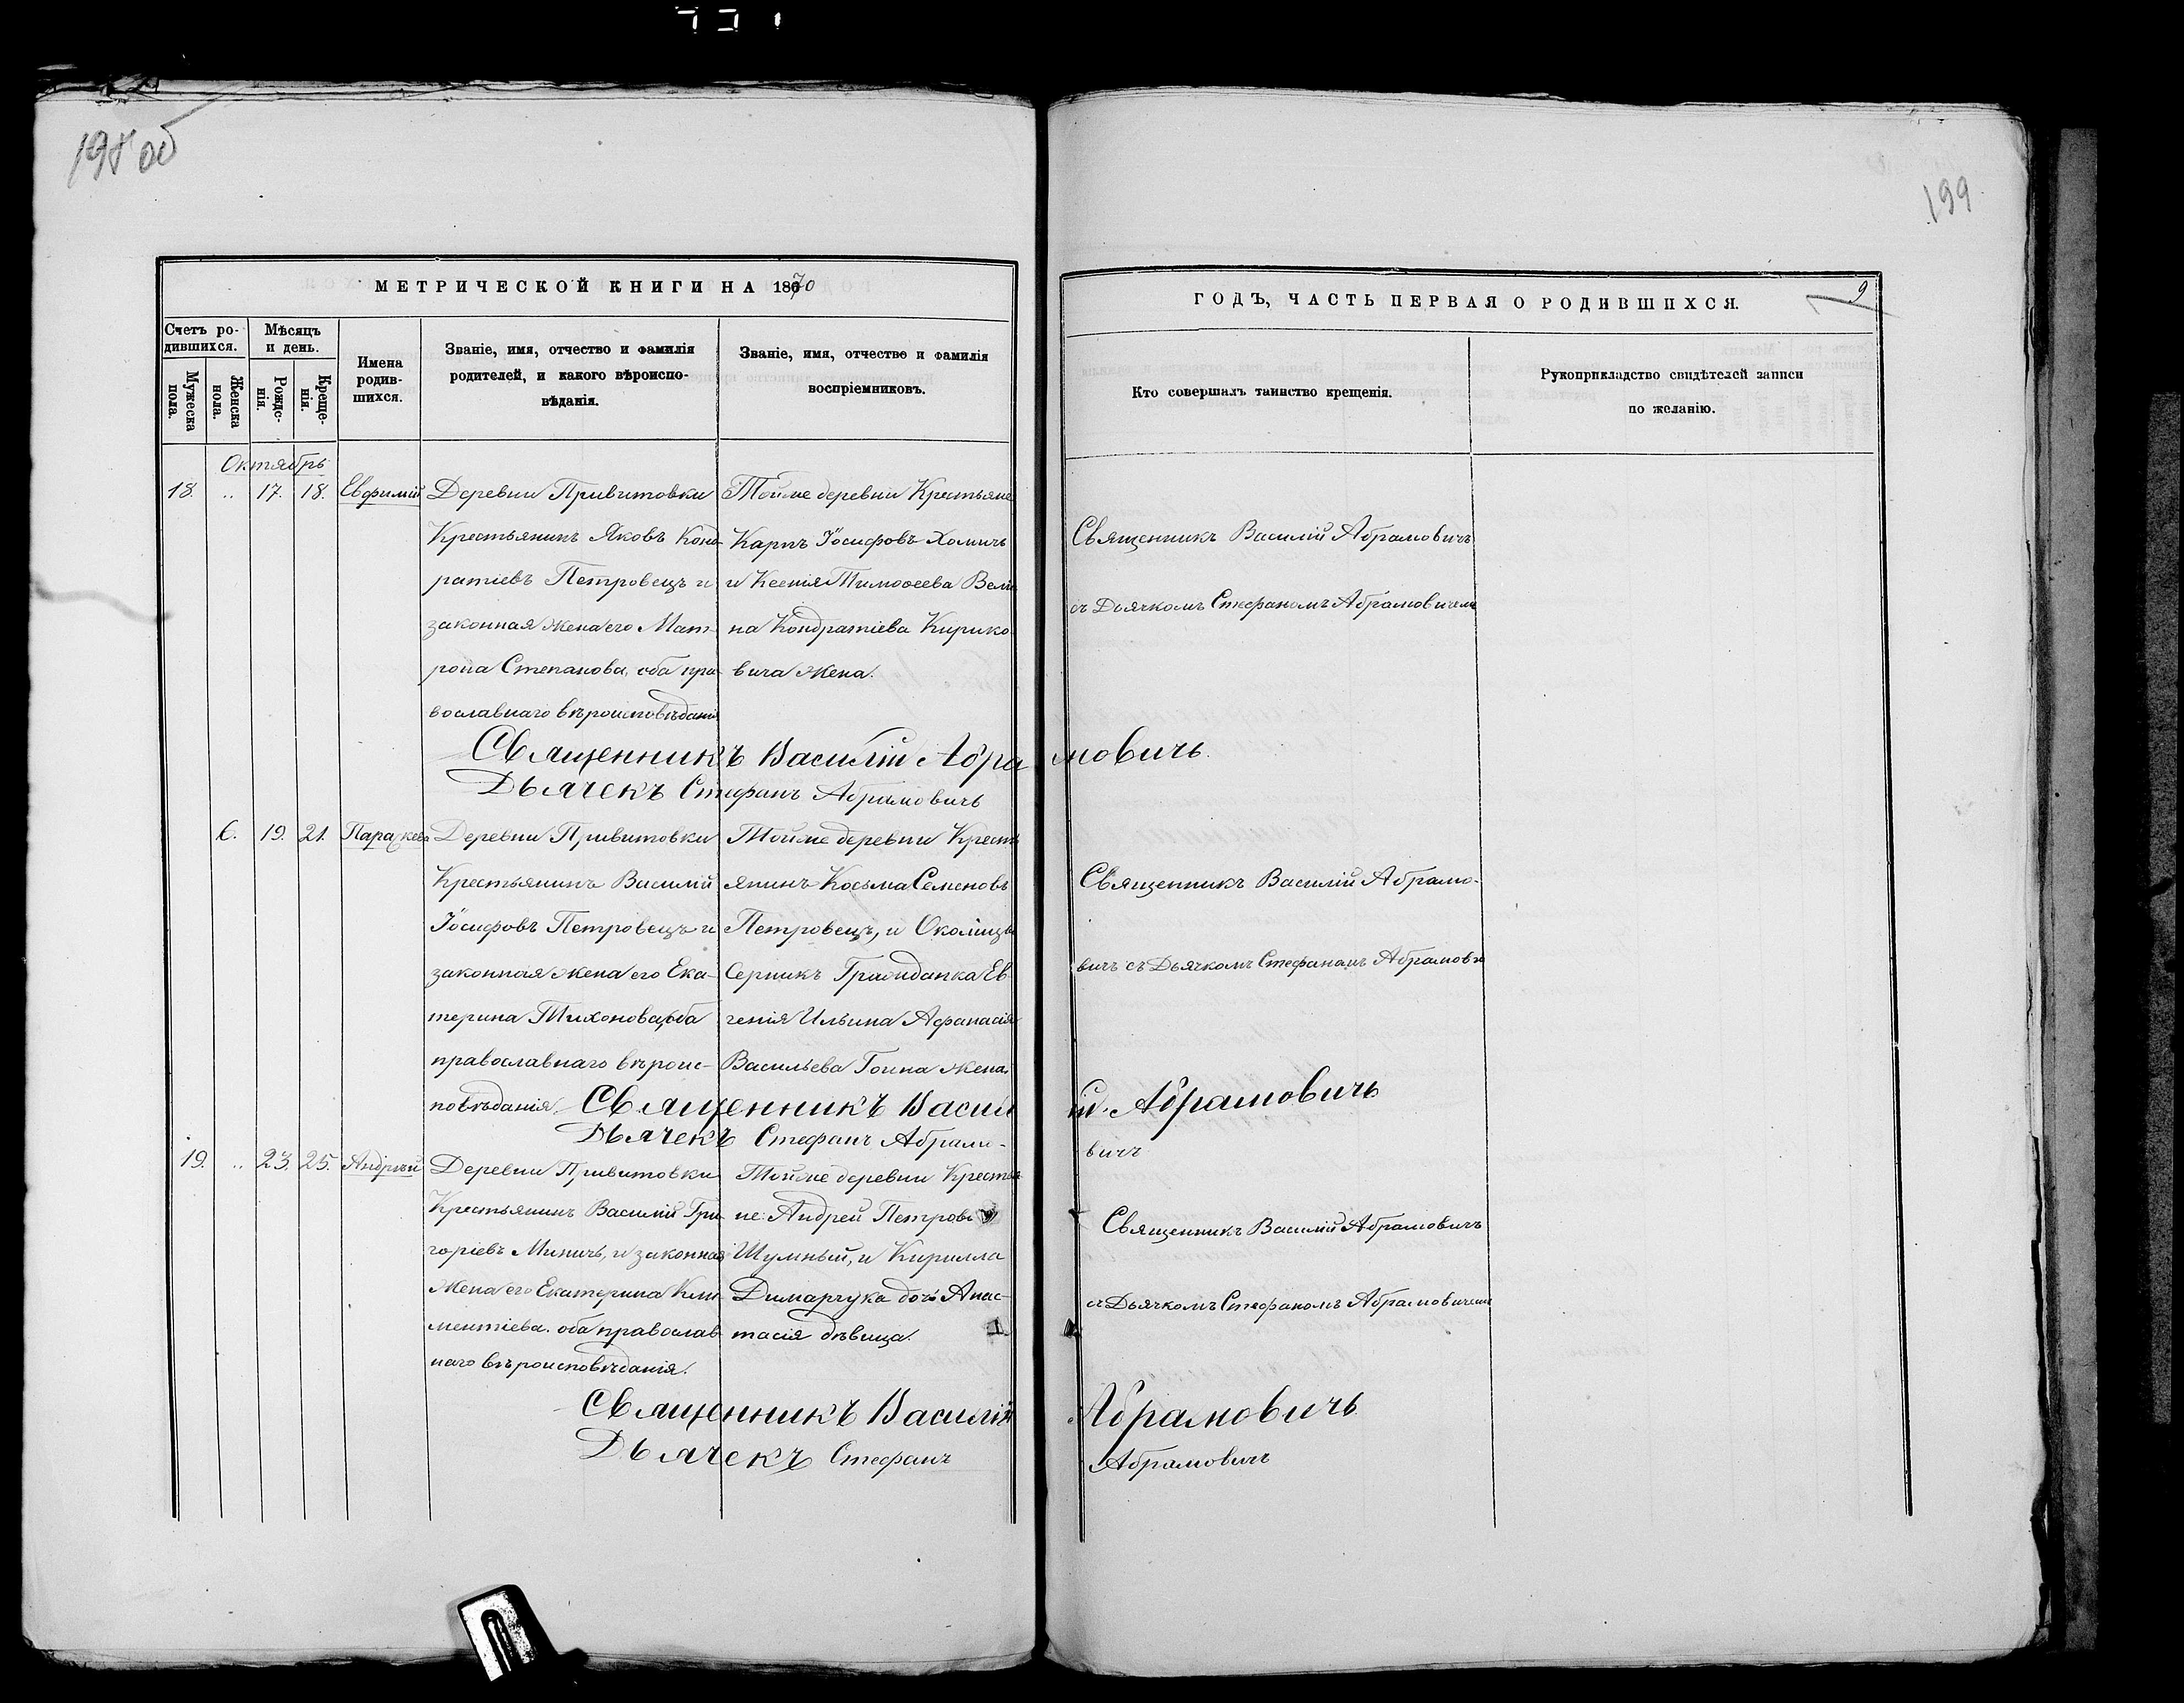 198 об
199
МЕТРИЧЕСКОЙ КНИГИ НА 1870
ГОДЪ, ЧАСТЬ ПЕРВАЯ О РОДИВШИХСЯ.
9
Счетъ ро-
дившихся.
Мужеска
пола.
Женска
пола.
Мѣсяцъ
и день.
Рождє-
нія.
Креще-
нія.
Имена
родив-
шихся.
Званіе, имя, отчество и фамилія
родителей, и какого вѣроиспо-
вѣданія.
Званіе, имя, отчество и фамилія
воспріемниковъ.
Кто совершалъ таинство крещенія.
Рукоприкладство свидѣтелей записи
по желанію.
Октябрь
18. „ 17. 18. Евфимій
Деревни Привитовки
Крестьянинъ Яковъ Конд-
ратіевъ Петровецъ и
законная жена его Мат-
рона Степанова, оба пра-
вославнаго вѣроисповѣданія
Тойже деревни Крестьяне
Карпъ Іосифовъ Хомичъ
и Ксенія Тимофеева
на Кондратіева Кирико
вича жена.
Священникъ Василій Абрамовичъ
съ Дьячкомъ Стефаномъ Абрамовичемъ
Священникъ Василій Абрамовичъ.
Дьячекъ Стефанъ Абрамовичъ
6. 19. 21. Параскева
Деревни Привитовки
Крестьянинъ Василій
Іосифовъ Петровецъ и
законная жена его Ека-
терина Тихонова, оба
православнаго вѣроис-
повѣданія.
Тойже деревни Кресть
янинъ Косьма Семеновъ
Петровецъ, и Околицы
Серникъ Гражданка Ев
генія Ильина Афанасія
Васильева Гоина жена.
Священникъ Василій Абрамо-
вичъ съ Дьячкомъ Стефаномъ Абрамов
Священникъ Василій Абрамовичъ
Дьячекъ Стефанъ Абрамо-
вичъ
19. „ 23. 25. Андрей
Деревни Привитовки
Крестьянинъ Василій Гри-
горіевъ Миничъ, и законная
жена его Екатерина Кли-
ментіева. оба православ
наго вѣроисповѣданія.
Тойже деревни Крестья
не: Андрей Петровъ
Шумный, и Кирилла
Димарчука дочь Анас-
тасія дѣвица.
Священникъ Василій Абрамовичъ
съ Дьячкомъ Стефаномъ Абрамовичемъ
Священникъ Василій Абрамовичъ
Дьячекъ Стефанъ Абрамовичъ